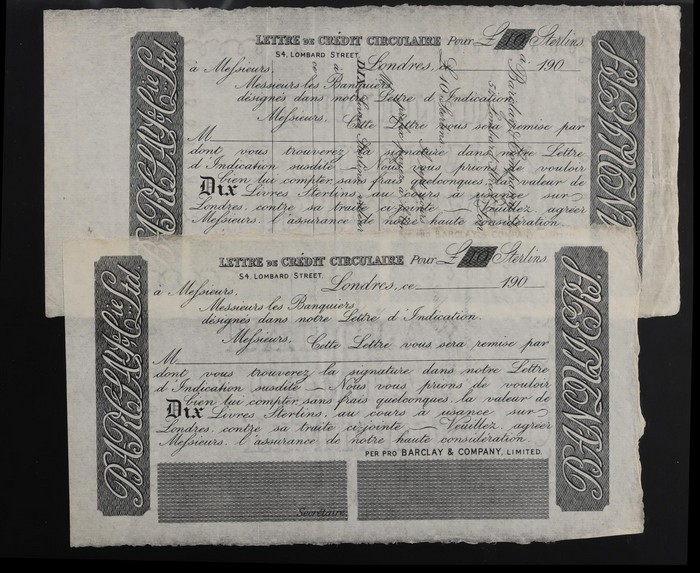 LETTRE DE CRÉDIT CIRCULAIRE Pour £10 Sterlins
54, LOMBARD STREET.
Londres,
190
à Messieurs,
Messieurs les Banquiers
désignés dans notre Lettre d'Indication
Messieurs. Cette Lettre vous sera remise par
M
dont vous trouverez la signature dans notre Lettre
d'Indication susdite — Nous vous prions de vouloir
bien lui compter, sans frais quelconques, la valeur de
Dix Livres Sterlins, au cours à usance sur
Londres, contre sa traite ci-jointe — Veuillez, agréer
Messieurs, l'assurance de notre haute considération.
BARCLAY & Cie Ltd.
BANQUIERS.
LETTRE DE CRÉDIT CIRCULAIRE Pour £10 Sterlins
54, LOMBARD STREET.
Londres, ce 190
à Messieurs,
Messieurs les Banquiers,
désignés dans notre Lettre d'Indication.
Messieurs. Cette Lettre vous sera remise par
M
dont vous trouverez la signature dans notre Lettre
d'Indication susdite — Nous vous prions de vouloir
bien lui compter, sans frais quelconques, la valeur de
Dix Livres Sterlins, au cours à usance sur
Londres, contre sa traite ci-jointe — Veuillez, agréer
Messieurs, l'assurance de notre haute considération.
PER PRO BARCLAY & COMPANY, LIMITED.
Secrétaire.
BARCLAY & Cie Ltd.
BANQUIERS.